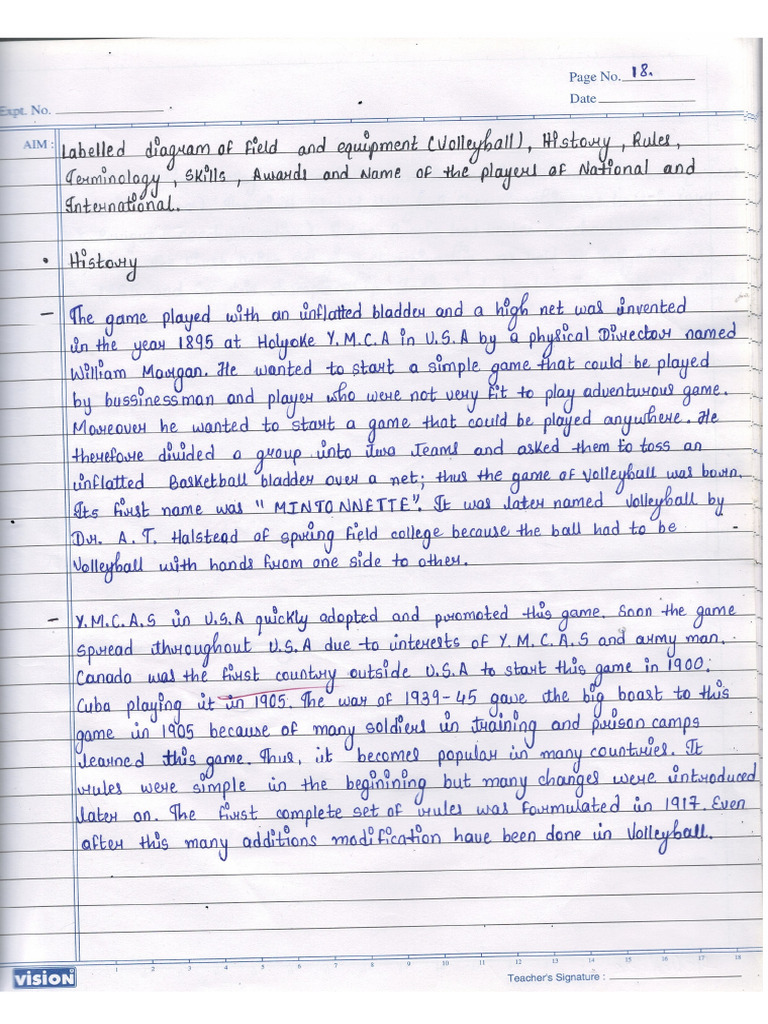 Page No. 18.
Expt. No.
Date
AIM : Labelled diagram of field and equipment (Volleyball), History, Rules,
Terminology, Skills, Awards and Name of the players of National and
International.
• History
– The game played with an inflatted bladder and a high net was invented
in the year 1895 at Holyoke Y.M.C.A in U.S.A by a physical Director named
William Morgan. He wanted to start a simple game that could be played
by bussinessman and player who were not very fit to play adventurous game.
Moreover he wanted to start a game that could be played anywhere. He
therefore divided a group into two Teams and asked them to toss an
inflatted Basketball bladder over a net; thus the game of Volleyball was born.
Its first name was "MINTONNETTE". It was later named Volleyball by
Dr. A. T. Halstead of spring field college because the ball had to be
Volleyball with hands from one side to other.
– Y.M.C.A.S in U.S.A quickly adopted and promoted this game. Soon the game
spread throughout U.S.A due to interests of Y.M.C.A.S and army man.
Canado was the first country outside U.S.A to start this game in 1900;
Cuba playing it in 1905. The war of 1939-45 gave the big boast to this
game in 1905 because of many soldiers in training and prison camps
learned this game. Thus, it becomes popular in many countries. It
rules were simple in the beginining but many changes were introduced
later on. The first complete set of rules was formulated in 1917. Even
after this many additions modification have been done in Volleyball.
1 2 3 4 5 6 7 8 9 10 11 12 13 14 15 16 17 18
VISION
Teacher's Signature :